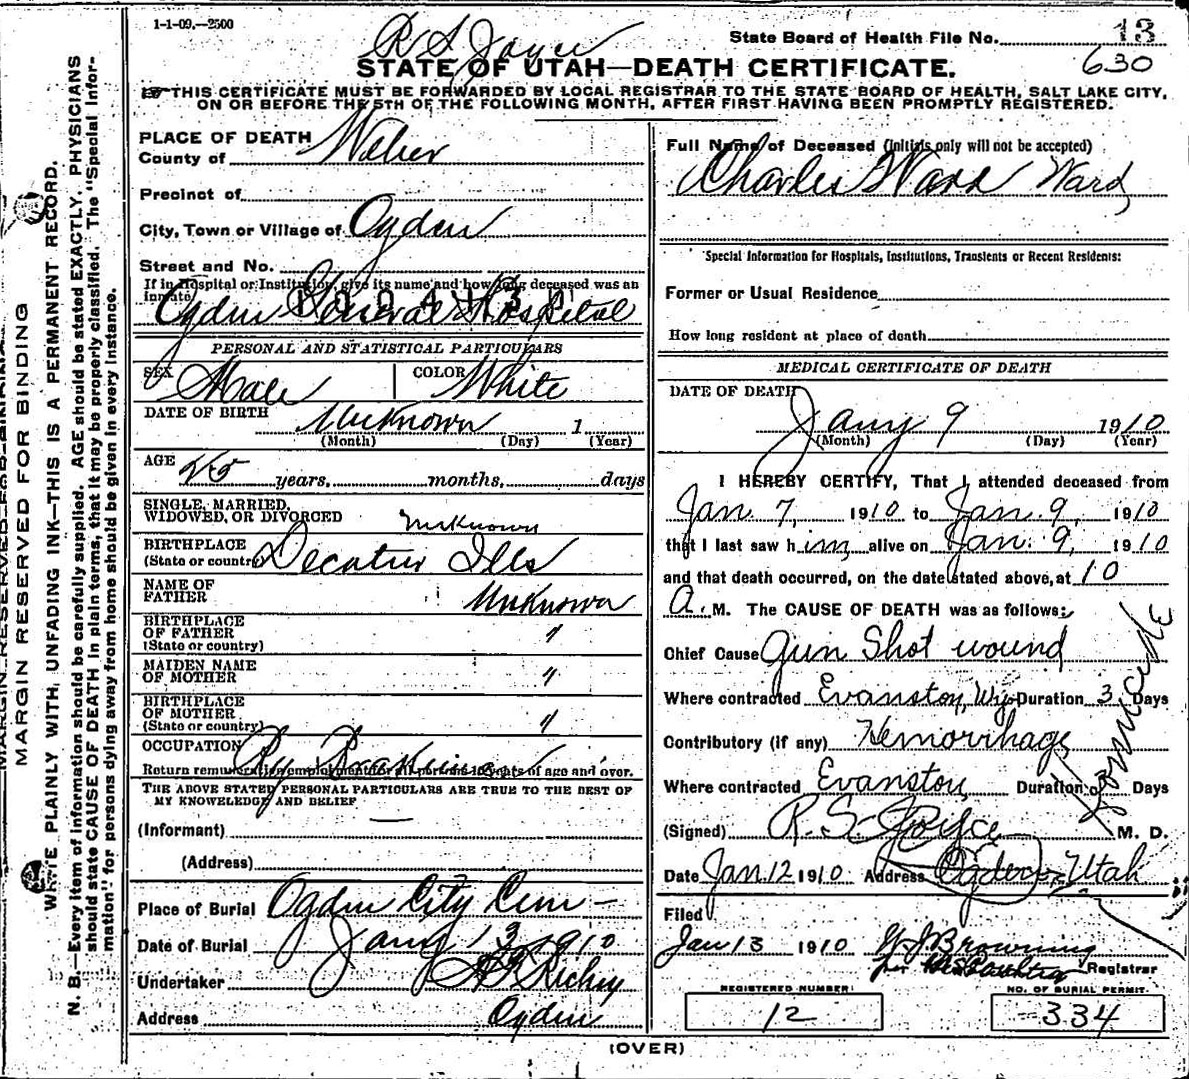 1-1-09.—2500
R S Joyce
State Board of Health File No. 13
630
STATE OF UTAH—DEATH CERTIFICATE.
THIS CERTIFICATE MUST BE FORWARDED BY LOCAL REGISTRAR TO THE STATE BOARD OF HEALTH, SALT LAKE CITY,
ON OR BEFORE THE 5TH OF THE FOLLOWING MONTH, AFTER FIRST HAVING BEEN PROMPTLY REGISTERED.
MARGIN RESERVED FOR BINDING
WRITE PLAINLY WITH UNFADING INK—THIS IS A PERMANENT RECORD.
N. B.—Every item of information should be carefully supplied. AGE should be stated EXACTLY. PHYSICIANS
should state CAUSE OF DEATH in plain terms, that it may be properly classified. The "Special Infor-
mation" for persons dying away from home should be given in every instance.
PLACE OF DEATH
County of Weber
Precinct of
City, Town or Village of Ogden
Street and No.
If in Hospital or Institution, give its name and how long deceased was an
inmate
Ogden General Hospital
PERSONAL AND STATISTICAL PARTICULARS
SEX Male COLOR White
DATE OF BIRTH Unknown 1
(Month) (Day) (Year)
AGE 25 years, months, days
SINGLE, MARRIED,
WIDOWED, OR DIVORCED Unknown
BIRTHPLACE
(State or country) Decatur Ills
NAME OF
FATHER Unknown
BIRTHPLACE
OF FATHER
(State or country) "
MAIDEN NAME
OF MOTHER "
BIRTHPLACE
OF MOTHER
(State or country) "
OCCUPATION Ry Brakeman
Return remunerative employment for all persons 10 years of age and over.
THE ABOVE STATED PERSONAL PARTICULARS ARE TRUE TO THE BEST OF
MY KNOWLEDGE AND BELIEF
(Informant)
(Address)
Place of Burial Ogden City Cem -
Date of Burial Jany 13 1910
Undertaker Richey
Address Ogden
Full Name of Deceased (initials only will not be accepted)
Charles Ward Ward
Special Information for Hospitals, Institutions, Transients or Recent Residents:
Former or Usual Residence
How long resident at place of death
MEDICAL CERTIFICATE OF DEATH
DATE OF DEATH
Jany 9 1910
(Month) (Day) (Year)
I HEREBY CERTIFY, That I attended deceased from
Jan. 7, 1910 to Jan. 9, 1910
that I last saw him alive on Jan. 9, 1910
and that death occurred, on the date stated above, at 10
A. M. The CAUSE OF DEATH was as follows:
Chief Cause Gun Shot wound
Where contracted Evanston, Wy Duration 3 Days
Contributory (if any) Hemorrhage
Homicide
Where contracted Evanston, Duration 3 Days
(Signed) R. S. Joyce M. D.
Date Jan. 12 1910 Address Ogden, Utah
Filed
Jan 13 1910 W J Browning
Registrar
REGISTERED NUMBER
12
NO. OF BURIAL PERMIT
334
(OVER)